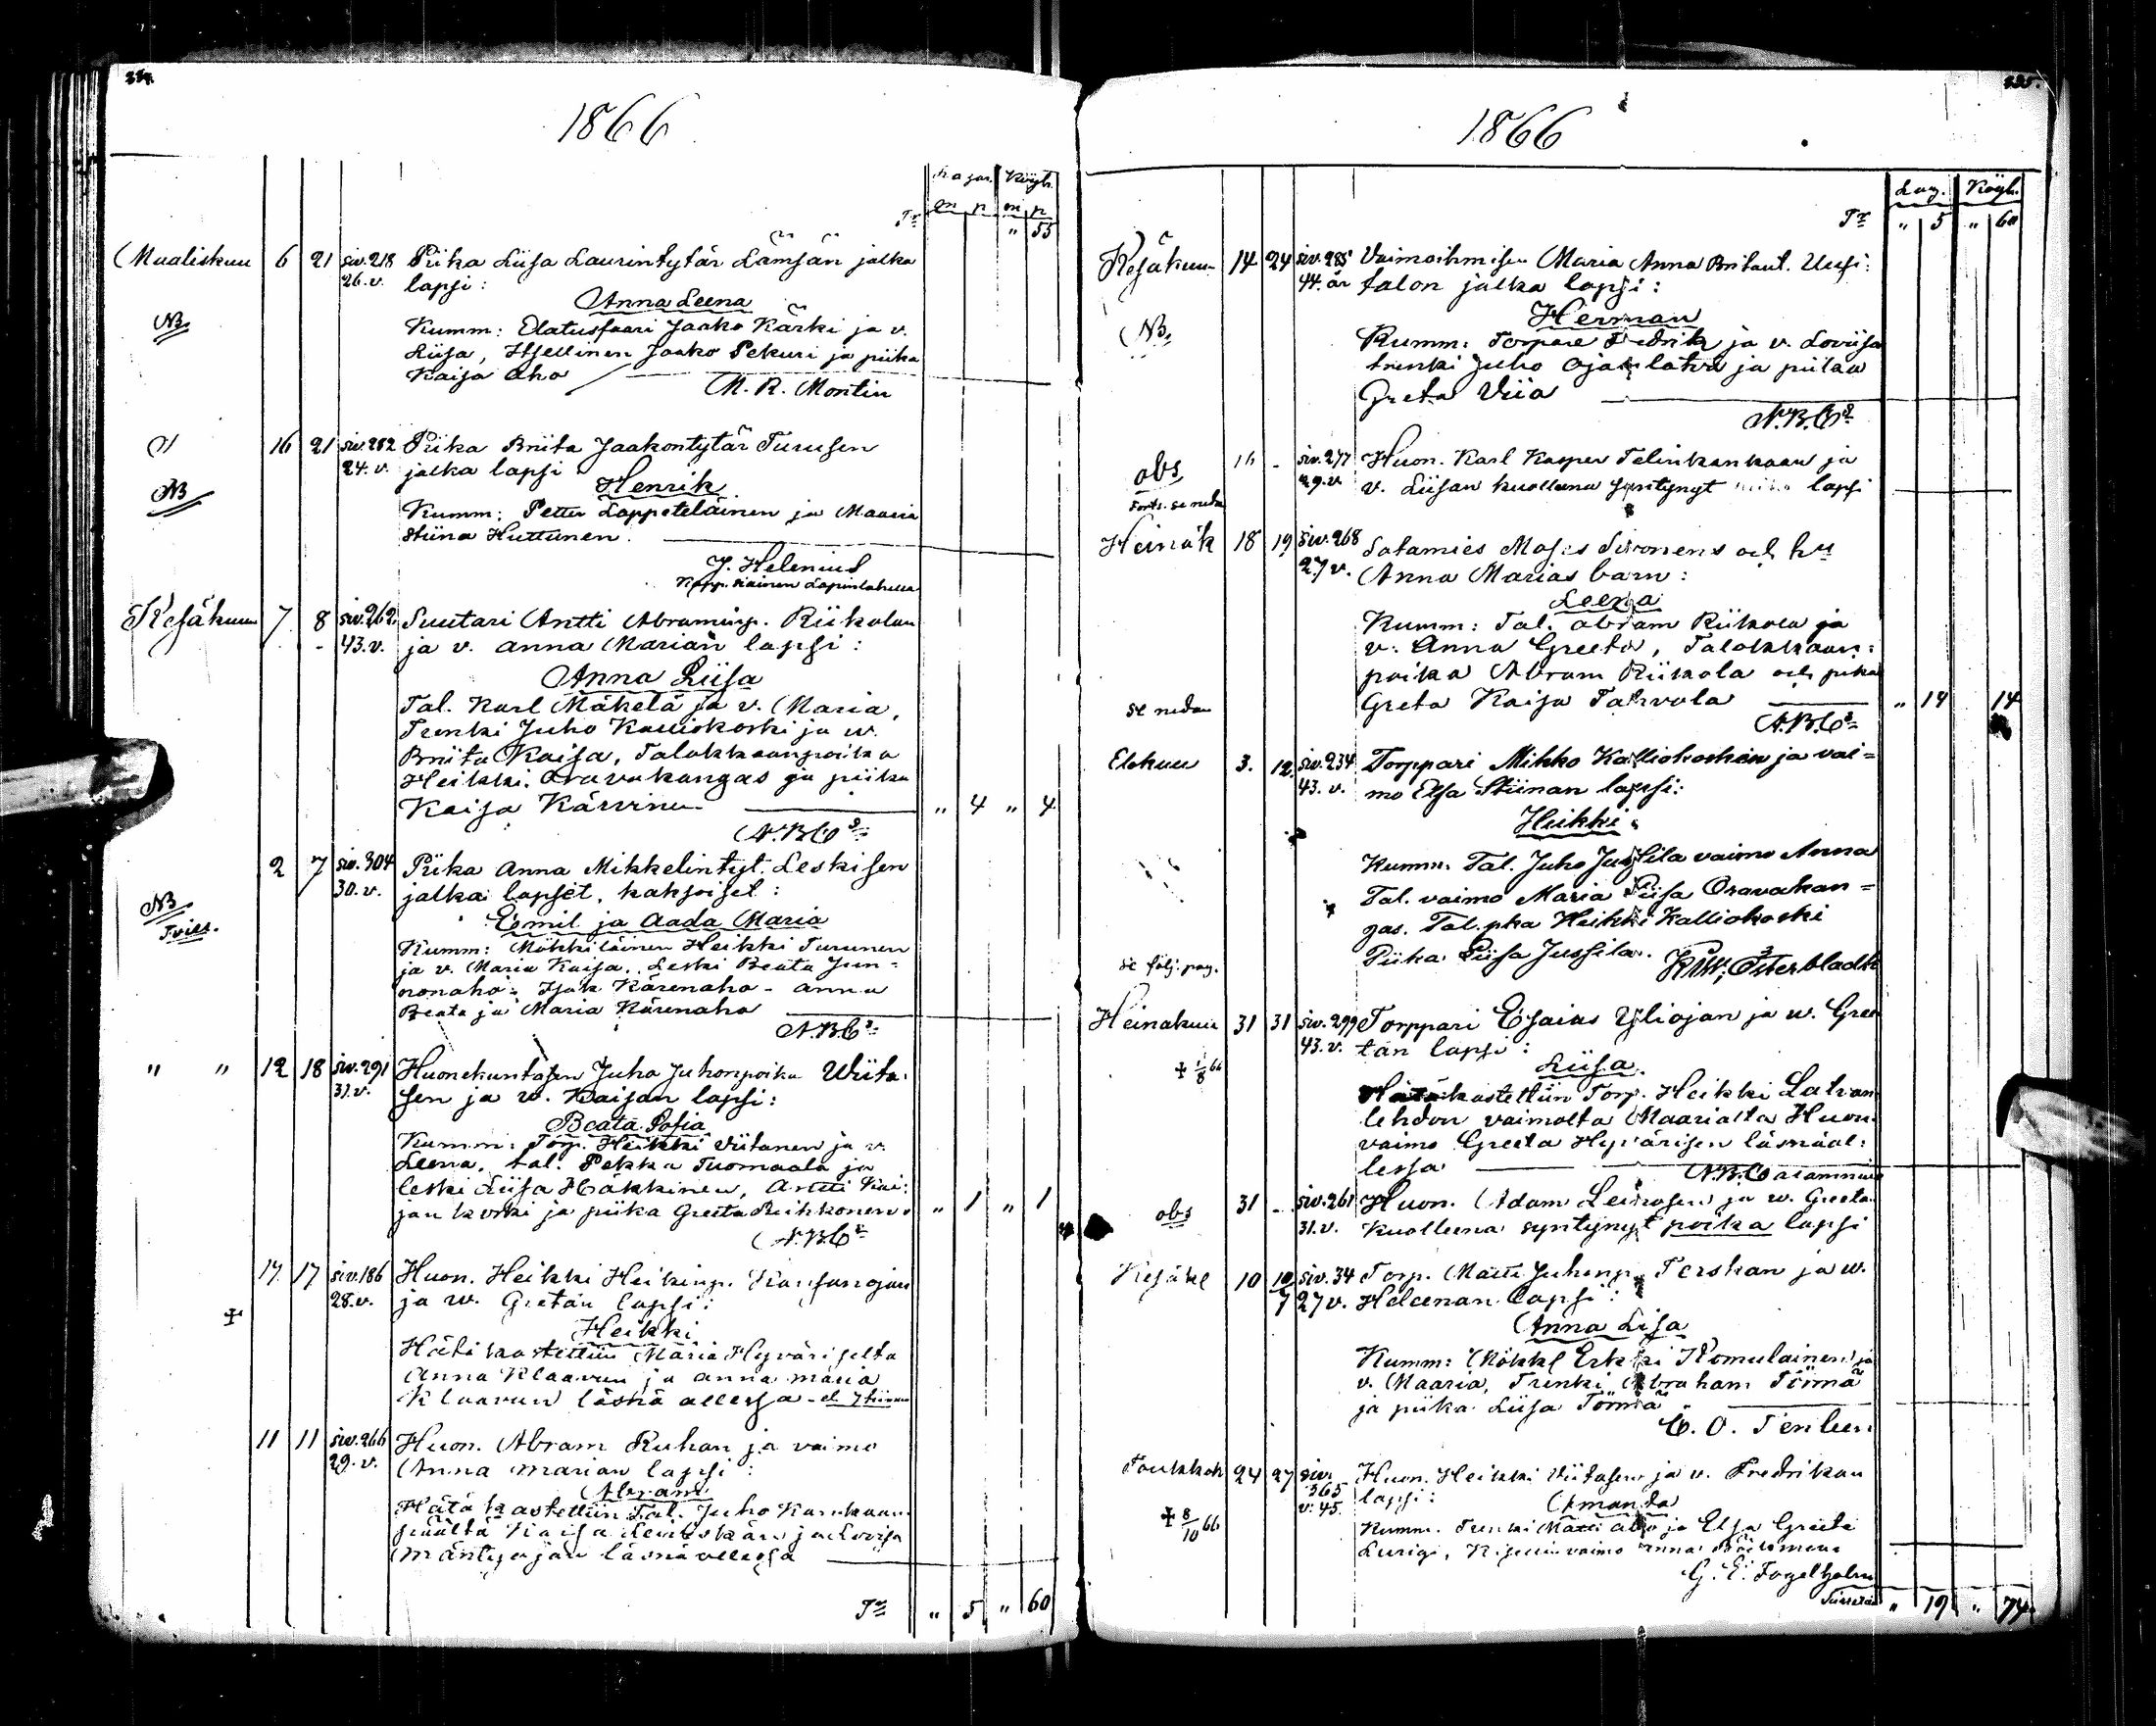 334.
1866
Lazar. Köyh.
m p m p
Tr " 55
Maaliskuu 6 21 siv. 218 Piika Liisa Laurintytär Lämsän jalka
26. v. lapsi:
Anna Leena
NB Kumm: Elatusfaari Jaako Kärki ja v.
Liisa, Itsellinen Jaako Pekuri ja piika
Kaisa Aho
M. R. Montin
" 16 21 siv. 282 Piika Briita Jaakontytär Turusen
24. v. jalka lapsi
Henrik
NB Kumm: Petter Lappeteläinen ja Maaria
Stiina Huttunen
J. Helenius
Kapp. Lapinlahella
Kesäkuu 7 8 siv. 262 Suutari Antti Abraminp. Riikolan
43. v. ja v. Anna Marian lapsi:
Anna Liisa
Tal. Karl Mäkelä ja v. Maria,
Trenki Juho Kalliokoski ja w.
Briita Kaisa, Talokkaanpoika
Heikki Oravakangas ja piika
Kaisa Kärvinen " 4 " 4
N.B.C
2 7 siv. 304 Piika Anna Mikkelintyt. Leskisen
30. v. jalka lapset, kaksoiset:
NB Tvill. Emil ja Aada Maria
Kumm: Mökkiläinen Heikki Turunen
ja v. Maria Kaisa. Leski Beata Jun-
nonaho. Isak Kärenaho - Anna
Beata ja Maria Kärenaho
N.B.C
" " 12 18 siv. 291 Huonekuntasen Juho Juhonpoika Wiita-
31. v. sen ja w. Kaisan lapsi:
Beata Sofia
Kumm: Torp. Heikki Viitanen ja v.
Leena, tal. Pekka Tuomaala ja
leski Liisa Häkkinen, Antti Kai-
jankoski ja piika Greeta Riihkonen " 1 " 1
N.B.C
17 17 siv. 186 Huon. Heikki Heikinp. Kansanojan
28. v. ja w. Gretan lapsi:
Heikki
Hätäkastettiin Maria Hyväriseltä
Anna Klaavun ja Anna Maria
Klaavun läsnä ollessa
11 11 siv. 266 Huon. Abram Ruhan ja vaimo
29. v. Anna Marian lapsi:
Abram
Hätäkastettiin Tal. Juho Karnkaan
Kaisa ja Lovisa
Mäntyojan läsnä ollessa
Tr " 5 " 60
335.
1866
Laz. Köyh.
Tr " 5 " 60
Kesäkuu 14 24 siv. 285 Vaimoihmisen Maria Anna Britant. Uusi-
44. år talon jalka lapsi:
Herman
NB Kumm: Torpare Fredrik ja v. Loviisa
trenki Juho Ojanlatva ja piika
Greta Viia
N.B.C
obs 16 - siv. 277 Huon. Karl Kasper Telinkankaan ja
29. v. v. Liisan kuollena syntynyt lapsi
Forts. se nedan
Heinäk 18 19 siv. 268 Sotamies Moses Sironens och hu
27 v. Anna Marias barn:
Leena
Kumm: Tal. Abram Riikola ja
v. Anna Greeta, Talokkaan-
poika Abram Riikola och pika
se nedan Greta Kaisa Tahvola " 14 14
N.B.C
Elokuu 3. 12. siv. 234 Torppari Mikko Kalliokosken ja vai-
43. v. mo Elsa Stiinan lapsi:
Heikki
Kumm. Tal. Juho Jussila vaimo Anna
Tal. vaimo Maria Liisa Oravakan-
gas. Tal. pka Heikki Kalliokoski
se följ. pag. Piika Liisa Jussila. K.W. Österbladh
Heinakuu 31 31 siv. 299 Torppari Esaias Yliojan ja w. Gree
43. v. tan lapsi:
+ 1/8 66 Liisa.
Hätäkastettiin Torp. Heikki Latvan
lehdon vaimolta Maarialta Huon.
vaimo Greeta Hyvärisen läsnäol-
lessa N.B. Cariammin
obs 31 - siv. 261 Huon. Adam Leinosen ja w. Greetan
31. v. Kuolleena syntynyt poika lapsi
Kesäk 10 10/7 siv. 34 Torp. Matti Juhonp. Terskan ja w.
27 v. Heleenan lapsi:
Anna Lisa
Kumm: Mökkl Erkki Komulainen ja
v. Maaria, Trenki Abraham Törmä
ja piika Liisa Törmä
C. O. Tenleen
Toukkok 24 27 siv. 365 Huon. Heikki Viitasen ja v. Fredrikan
v. 45. lapsi:
Amanda
+ 8/10 66 Kumm. Trenki Matti Aho ja Elsa Greeta
Lurig, vaimo Anna
G. E. Fogelholm
" 19 " 74